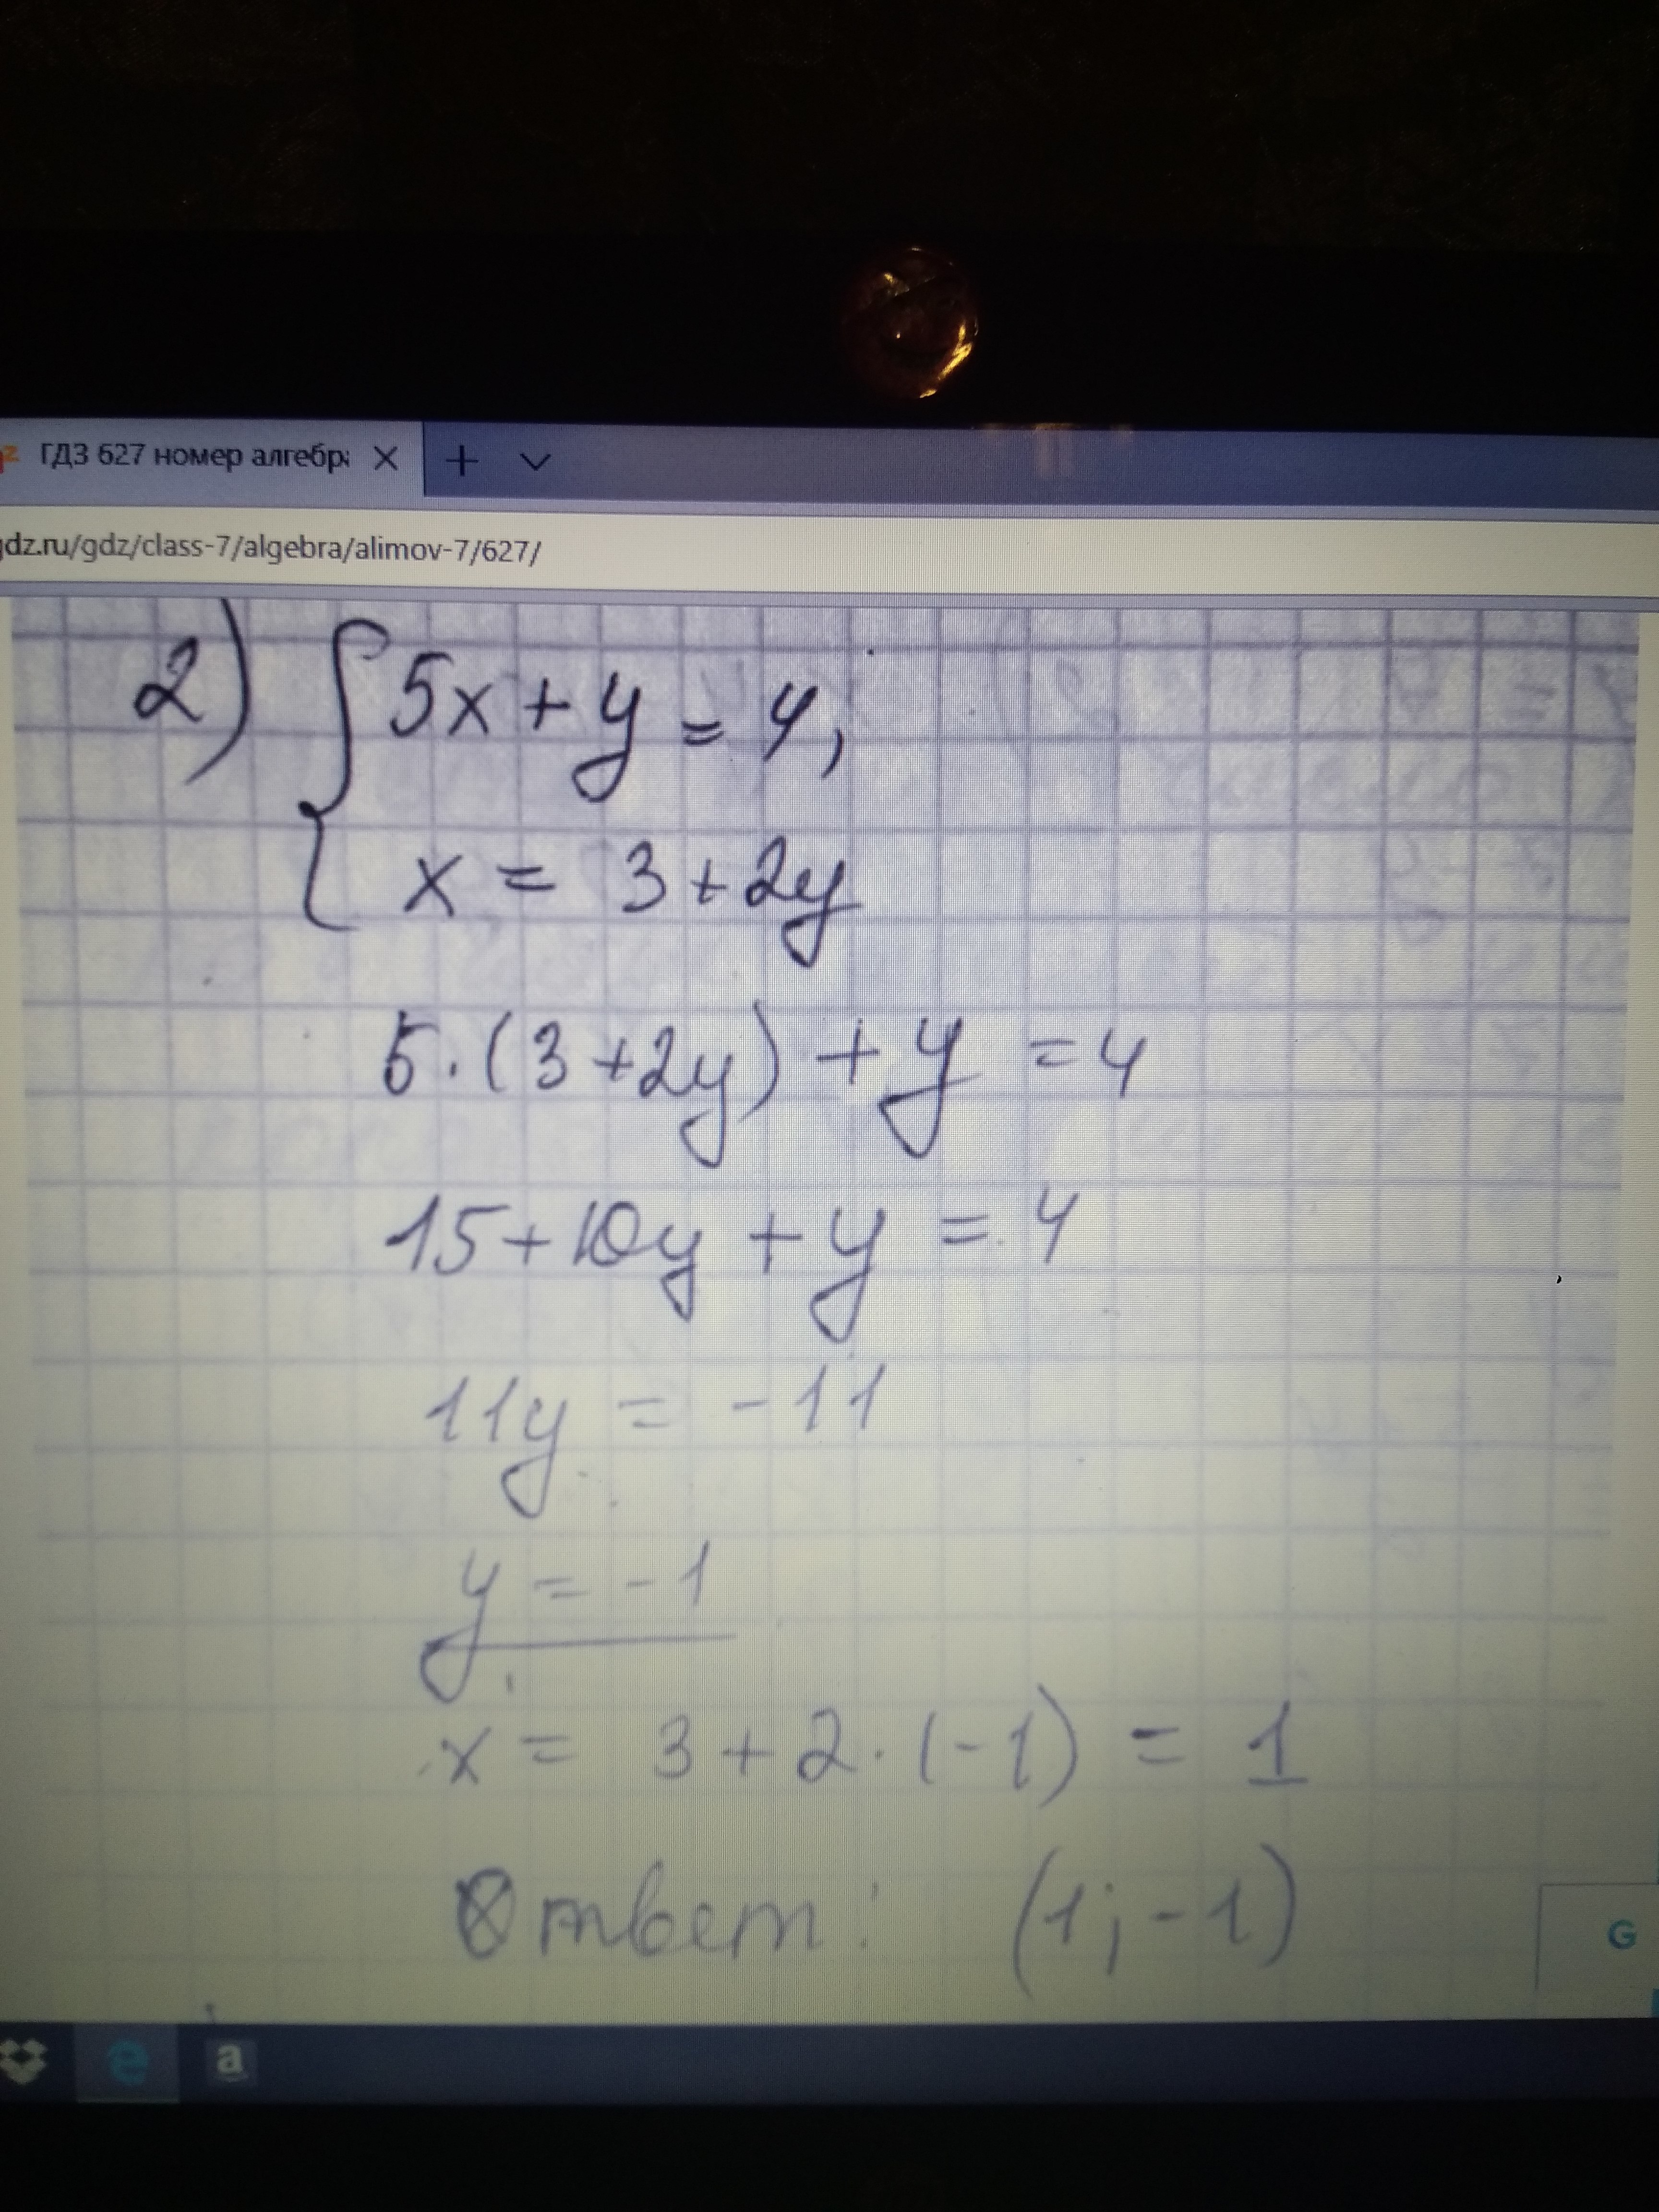 ГДЗ 627 номер алгебр
gdz.ru/gdz/class-7/algebra/alimov-7/627/
2) { 5x + y = 4,
x = 3 + 2y
5 · (3 + 2y) + y = 4
15 + 10y + y = 4
11y = -11
y = -1
x = 3 + 2 · (-1) = 1
Ответ: (1; -1)
G
e a